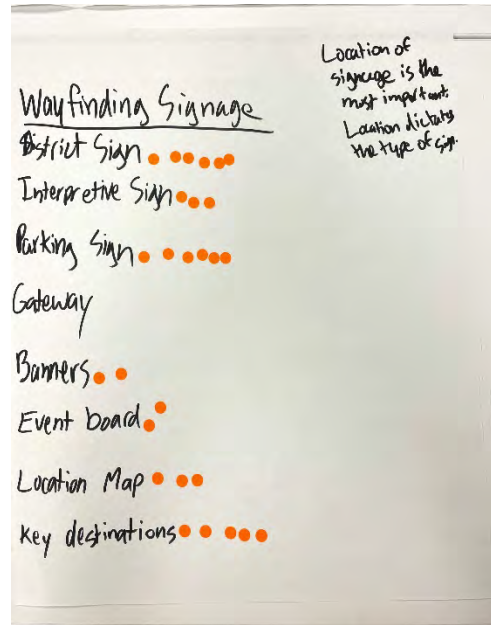 Wayfinding Signage
District Sign
Interpretive Sign
Parking Sign
Gateway
Banners
Event board
Location Map
Key destinations
Location of
signage is the
most important.
Location dictates
the type of sign.